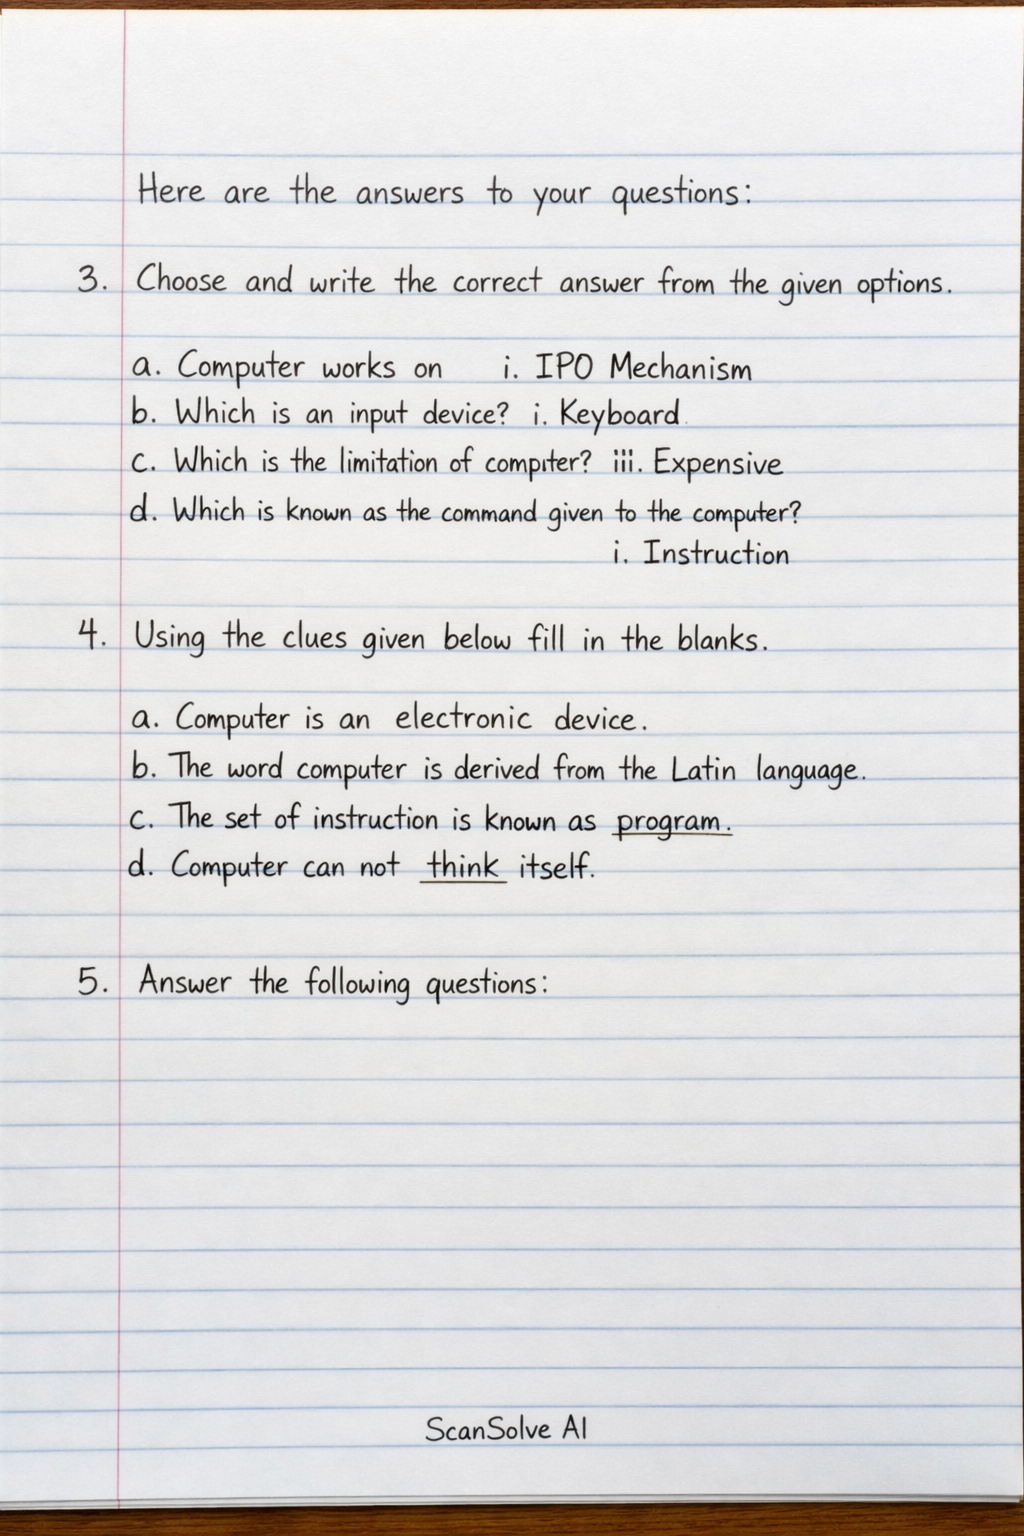 Here are the answers to your questions:
3. Choose and write the correct answer from the given options.
a. Computer works on i. IPO Mechanism
b. Which is an input device? i. Keyboard
c. Which is the limitation of compıter? iii. Expensive
d. Which is known as the command given to the computer?
i. Instruction
4. Using the clues given below fill in the blanks.
a. Computer is an electronic device.
b. The word computer is derived from the Latin language.
c. The set of instruction is known as program.
d. Computer can not think itself.
5. Answer the following questions:
ScanSolve AI